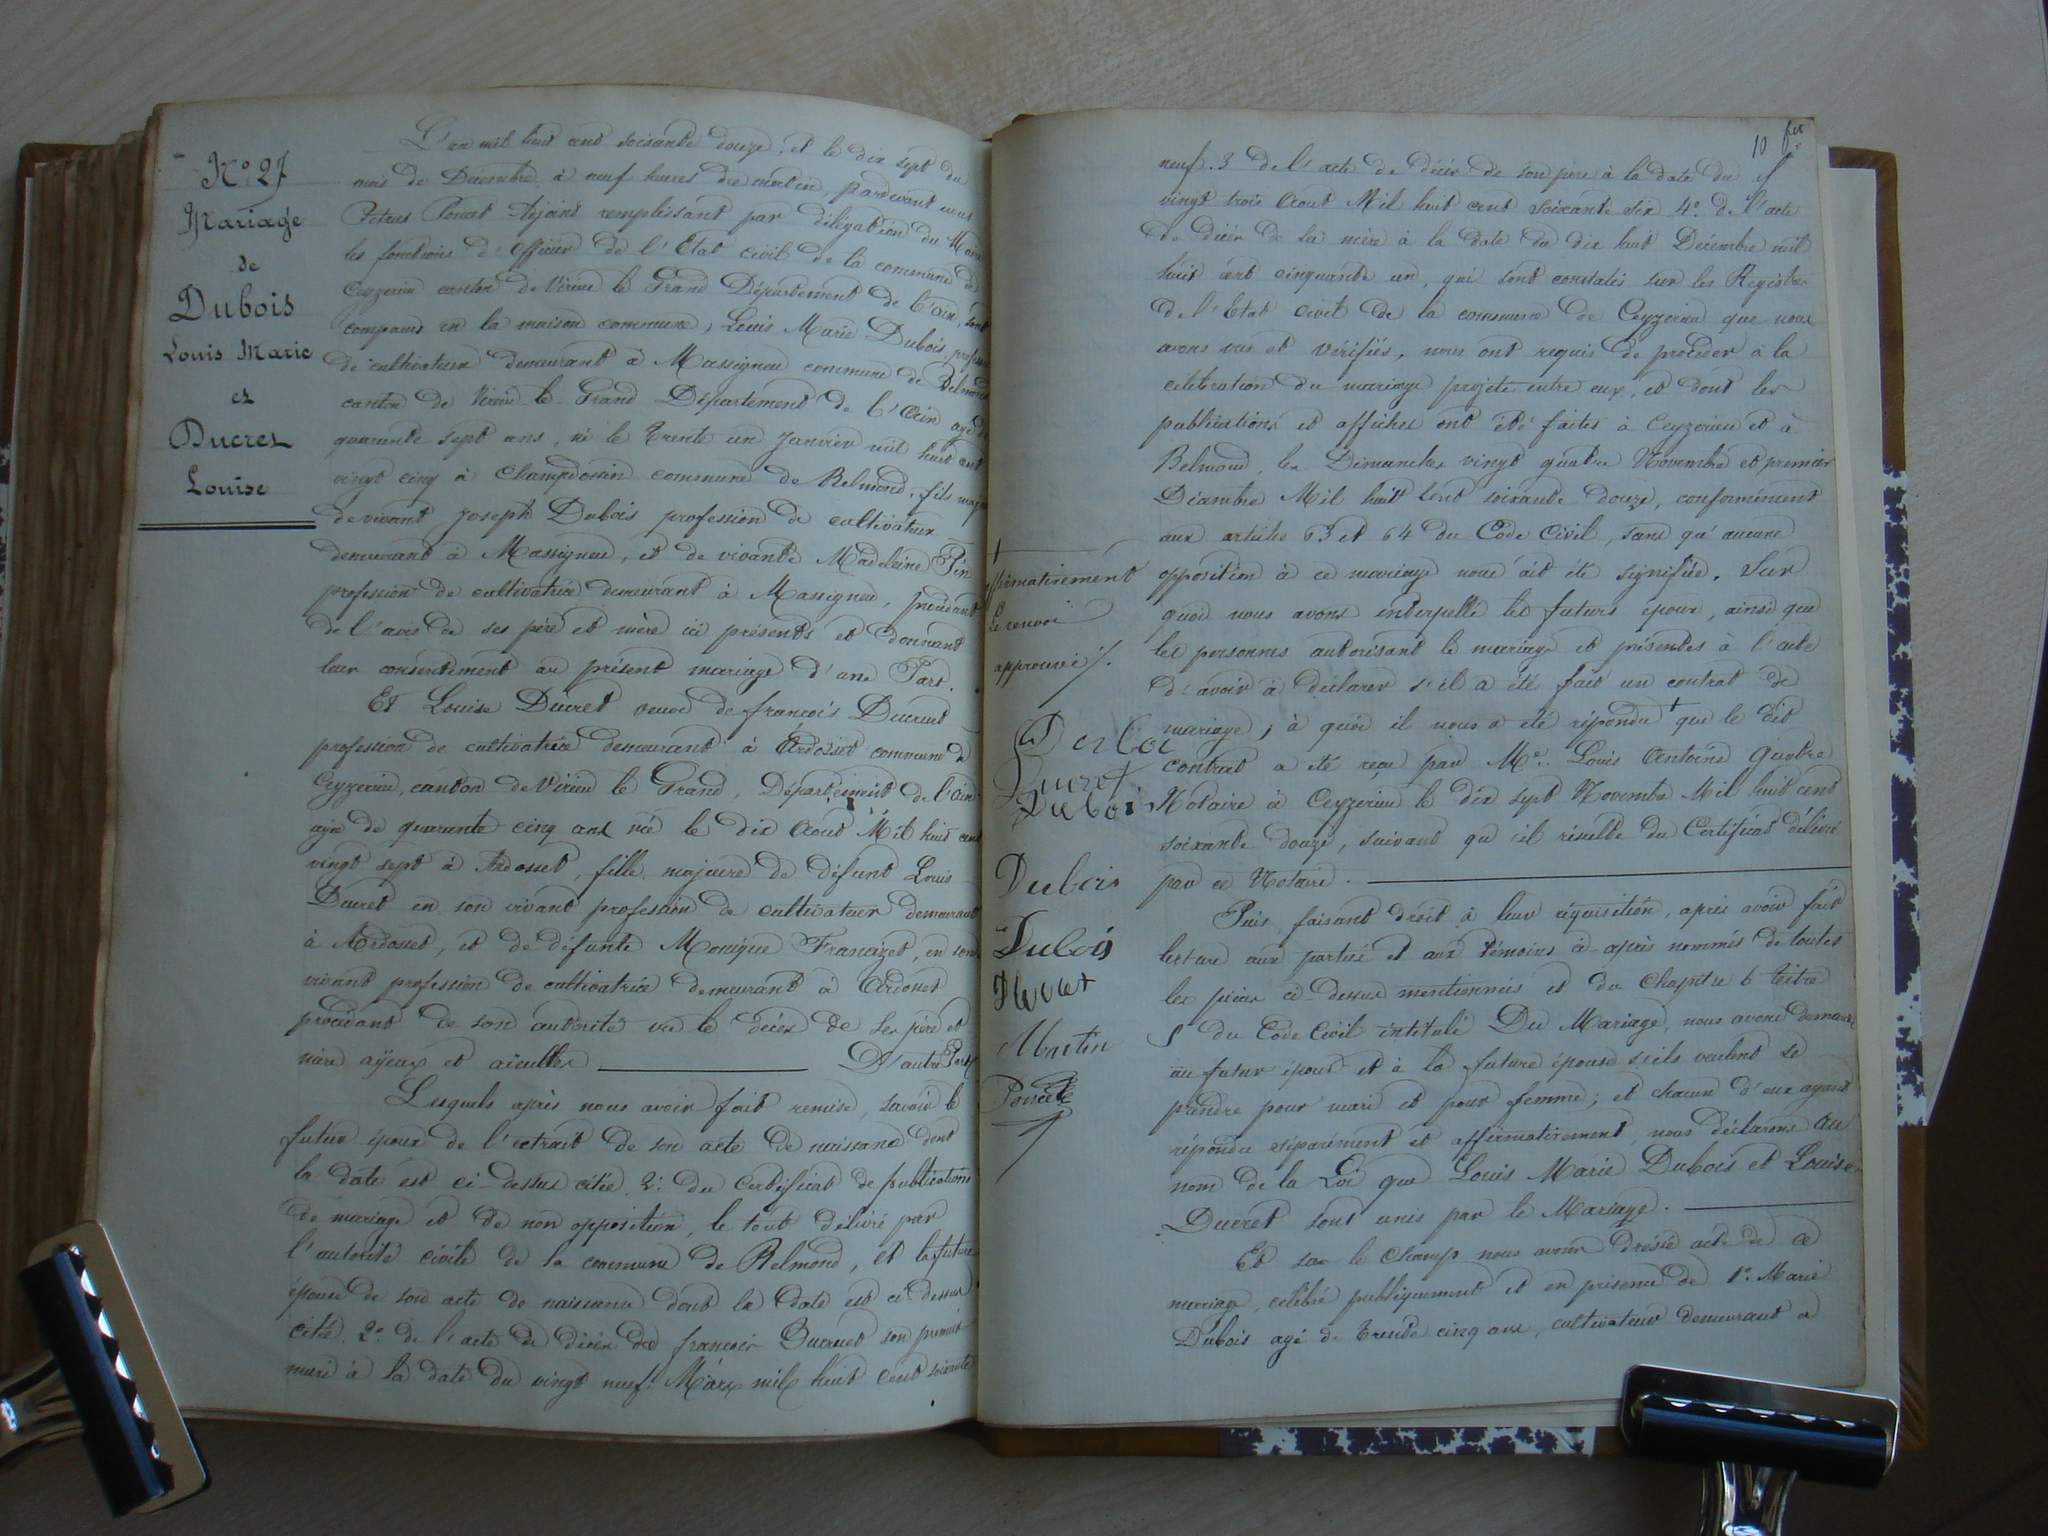 N° 27
Mariage
de
Dubois
Louis Marie
et
Ducret
Louise
L'an mil huit cent soixante douze, et le dix sept du
mois de Décembre à neuf heures du matin, pardevant nous
adjoint remplissant par délégation du Maire
les fonctions d'officier de l'Etat civil de la commune de
Ceyzerieu canton de Virieu le Grand Département de l'ain, sont
comparus en la maison commune, Louis Marie Dubois profession
de cultivateur demeurant à Massignieu commune de Belmond
canton de Virieu le Grand Département de l'Ain, agé de
quarante sept ans, né le trente un Janvier mil huit cent
vingt cinq à Champdossin commune de Belmond, fils majeur
de vivant Joseph Dubois profession de cultivateur
demeurant à Massignieu, et de vivante Madeleine Pin
profession de cultivatrice demeurant à Massignieu, procédant
de l'avis de ses père et mère ici présents et donnant
leur consentement au présent mariage d'une Part.
Et Louise Ducret veuve de françois Ducruet
profession de cultivatrice demeurant à Ardosset commune de
Ceyzerieu, canton de Virieu le Grand, Département de l'ain
agée de quarante cinq ans née le dix Aout Mil huit cent
vingt sept à Ardosset, fille majeure de défunt Louis
Ducret en son vivant profession de cultivateur demeurant
à Ardosset, et de défunte Monique Francizet, en son
vivant profession de cultivatrice demeurant à Ardosset
procédant de son autorité vu le décès de ses père et
mère ayeux et aieulles D'autre Part
Lesquels après nous avoir fait remise, savoir le
futur époux de l'extrait de son acte de naissance dont
la date est ci-dessus citée 2° du certificat de publications
de mariage et de non opposition, le tout délivré par
l'autorité civile de la commune de Belmond, et la future
épouse de son acte de naissance dont la date est ci dessus
citée. 2° de l'acte de décès de françois Ducruet son premier
mari à la date du vingt neuf Mars mil huit cent soixante
10
neuf. 3 de l'acte de décès de son père à la date du
vingt trois Aout Mil huit cent soixante six 4° de l'acte
de décès de sa mère à la date du dix huit Décembre mil
huit cent cinquante un, qui sont constatés sur les Registres
de l'Etat civil de la commune de Ceyzerieu que nous
avons vus et vérifiés, nous ont requis de procéder à la
célébration du mariage projeté entre eux, et dont les
publications et affiches ont été faites à Ceyzerieu et à
Belmond, les Dimanches vingt quatre Novembre et premier
Décembre Mil huit Cent soixante douze, conformément
aux articles 63 et 64 du Code Civil, sans qu'aucune
opposition à ce mariage nous ait été signifiée. Sur
quoi nous avons interpellé les futurs époux, ainsi que
les personnes autorisant le mariage et présentes à l'acte
d'avoir à déclarer s'il a été fait un contrat de
mariage, à quoi il nous a été répondu + que le dit
contrat a été reçu par Me Louis Antoine
Notaire à Ceyzerieu le dix sept Novembre Mil huit cent
soixante douze, suivant qu'il résulte du Certificat délivré
par ce Notaire.
Puis, faisant droit à leur réquisition, après avoir fait
lecture aux parties et aux témoins ci-après nommés de toutes
les pièces ci-dessus mentionnées et du chapitre 6 titre
5 du Code Civil intitulé Du Mariage, nous avons demandé
au futur époux et à la future épouse s'ils veulent se
prendre pour mari et pour femme; et chacun d'eux ayant
répondu séparément et affirmativement, nous déclarons au
nom de la Loi que Louis Marie Dubois et Louise
Ducret sont unis par le Mariage.
Et sur le champ nous avons dressé acte de ce
mariage, célébré publiquement et en présence de 1° Marie
Dubois agé de trente cinq ans, cultivateur demeurant à
+
affirmativement
Le renvoi
approuvé
Ducret
Dubois
Dubois
Dubois
Martin